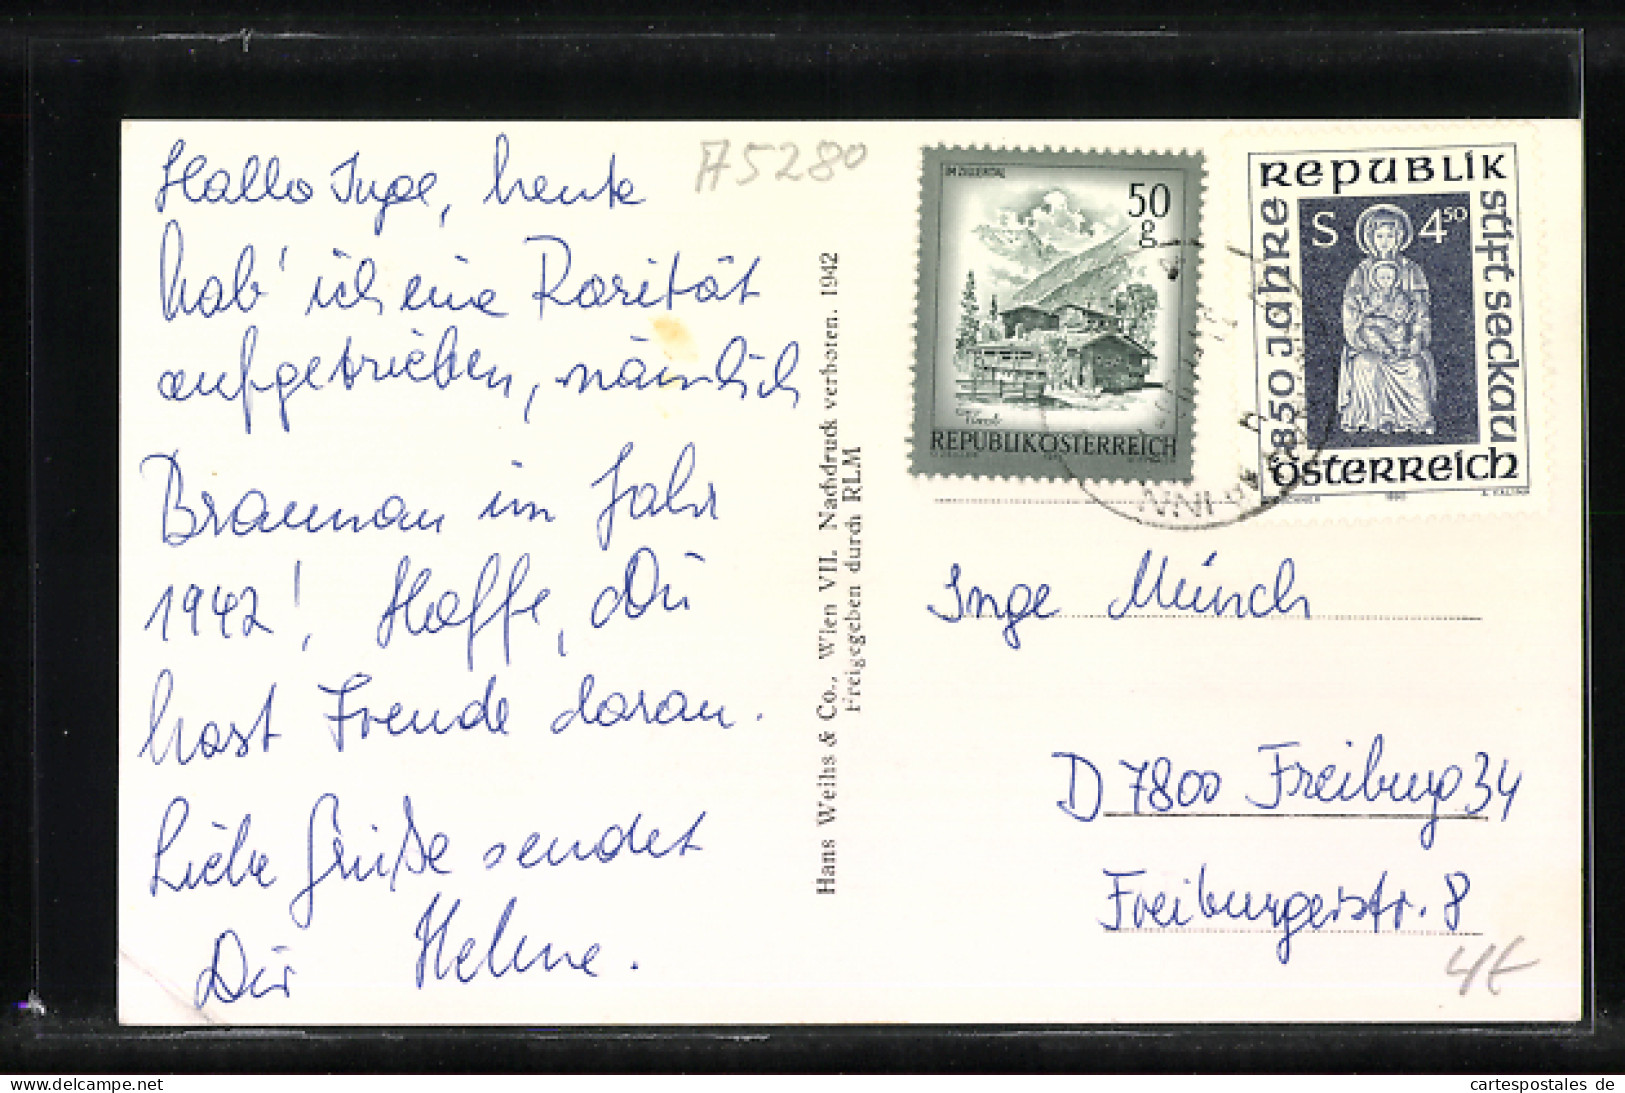 A5280
Hallo Inge, heute
hab' ich eine Rarität
aufgetrieben, nämlich
Braunau im Jahr
1942! Hoffe, Du
hast Freude daran.
Liebe Grüße sendet
Dir Helene.
Hans Weihs & Co., Wien VII. Nachdruck verboten. 1942
Freigegeben durch RLM
IM ZILLERTAL
50
g
Tirol
REPUBLIK ÖSTERREICH
REPUBLIK
850 JAHRE
STIFT SECKAU
S 4 50
ÖSTERREICH
AM INN
Inge Münch
D 7800 Freiburg 34
Freiburgerstr. 8
4€
hero21
cartespostales de